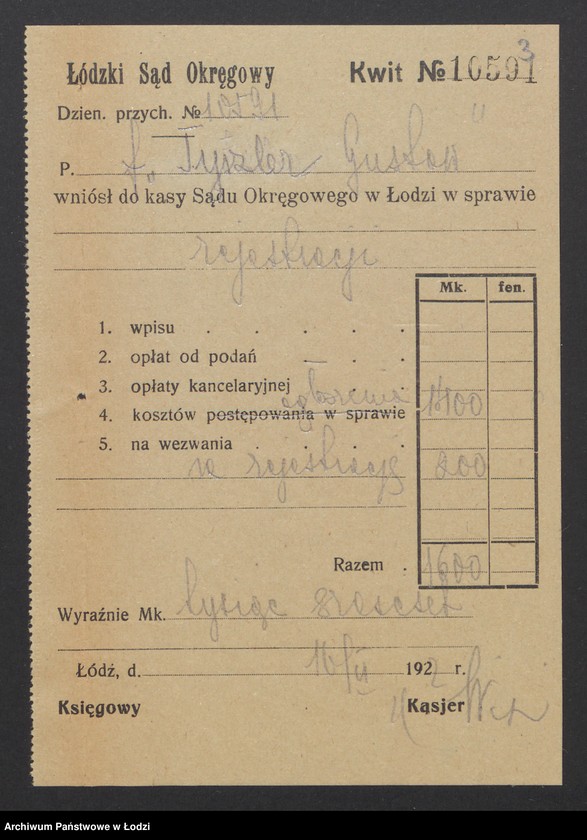 3
Łódzki Sąd Okręgowy Kwit № 10591
Dzien. przych. № 10591
P. f. „Tyszler Gustaw"
wniósł do kasy Sądu Okręgowego w Łodzi w sprawie
rejestracji
Mk. fen.
1. wpisu . . . . .
2. opłat od podań . . .
3. opłaty kancelaryjnej
ogłoszenia 1400
4. kosztów postępowania w sprawie
5. na wezwania . . . .
za rejestrację 200
Razem . 1600
Wyraźnie Mk. tysiąc sześćset
Łódź, d. 16/II 1922 r.
Księgowy Kasjer
Archiwum Państwowe w Łodzi